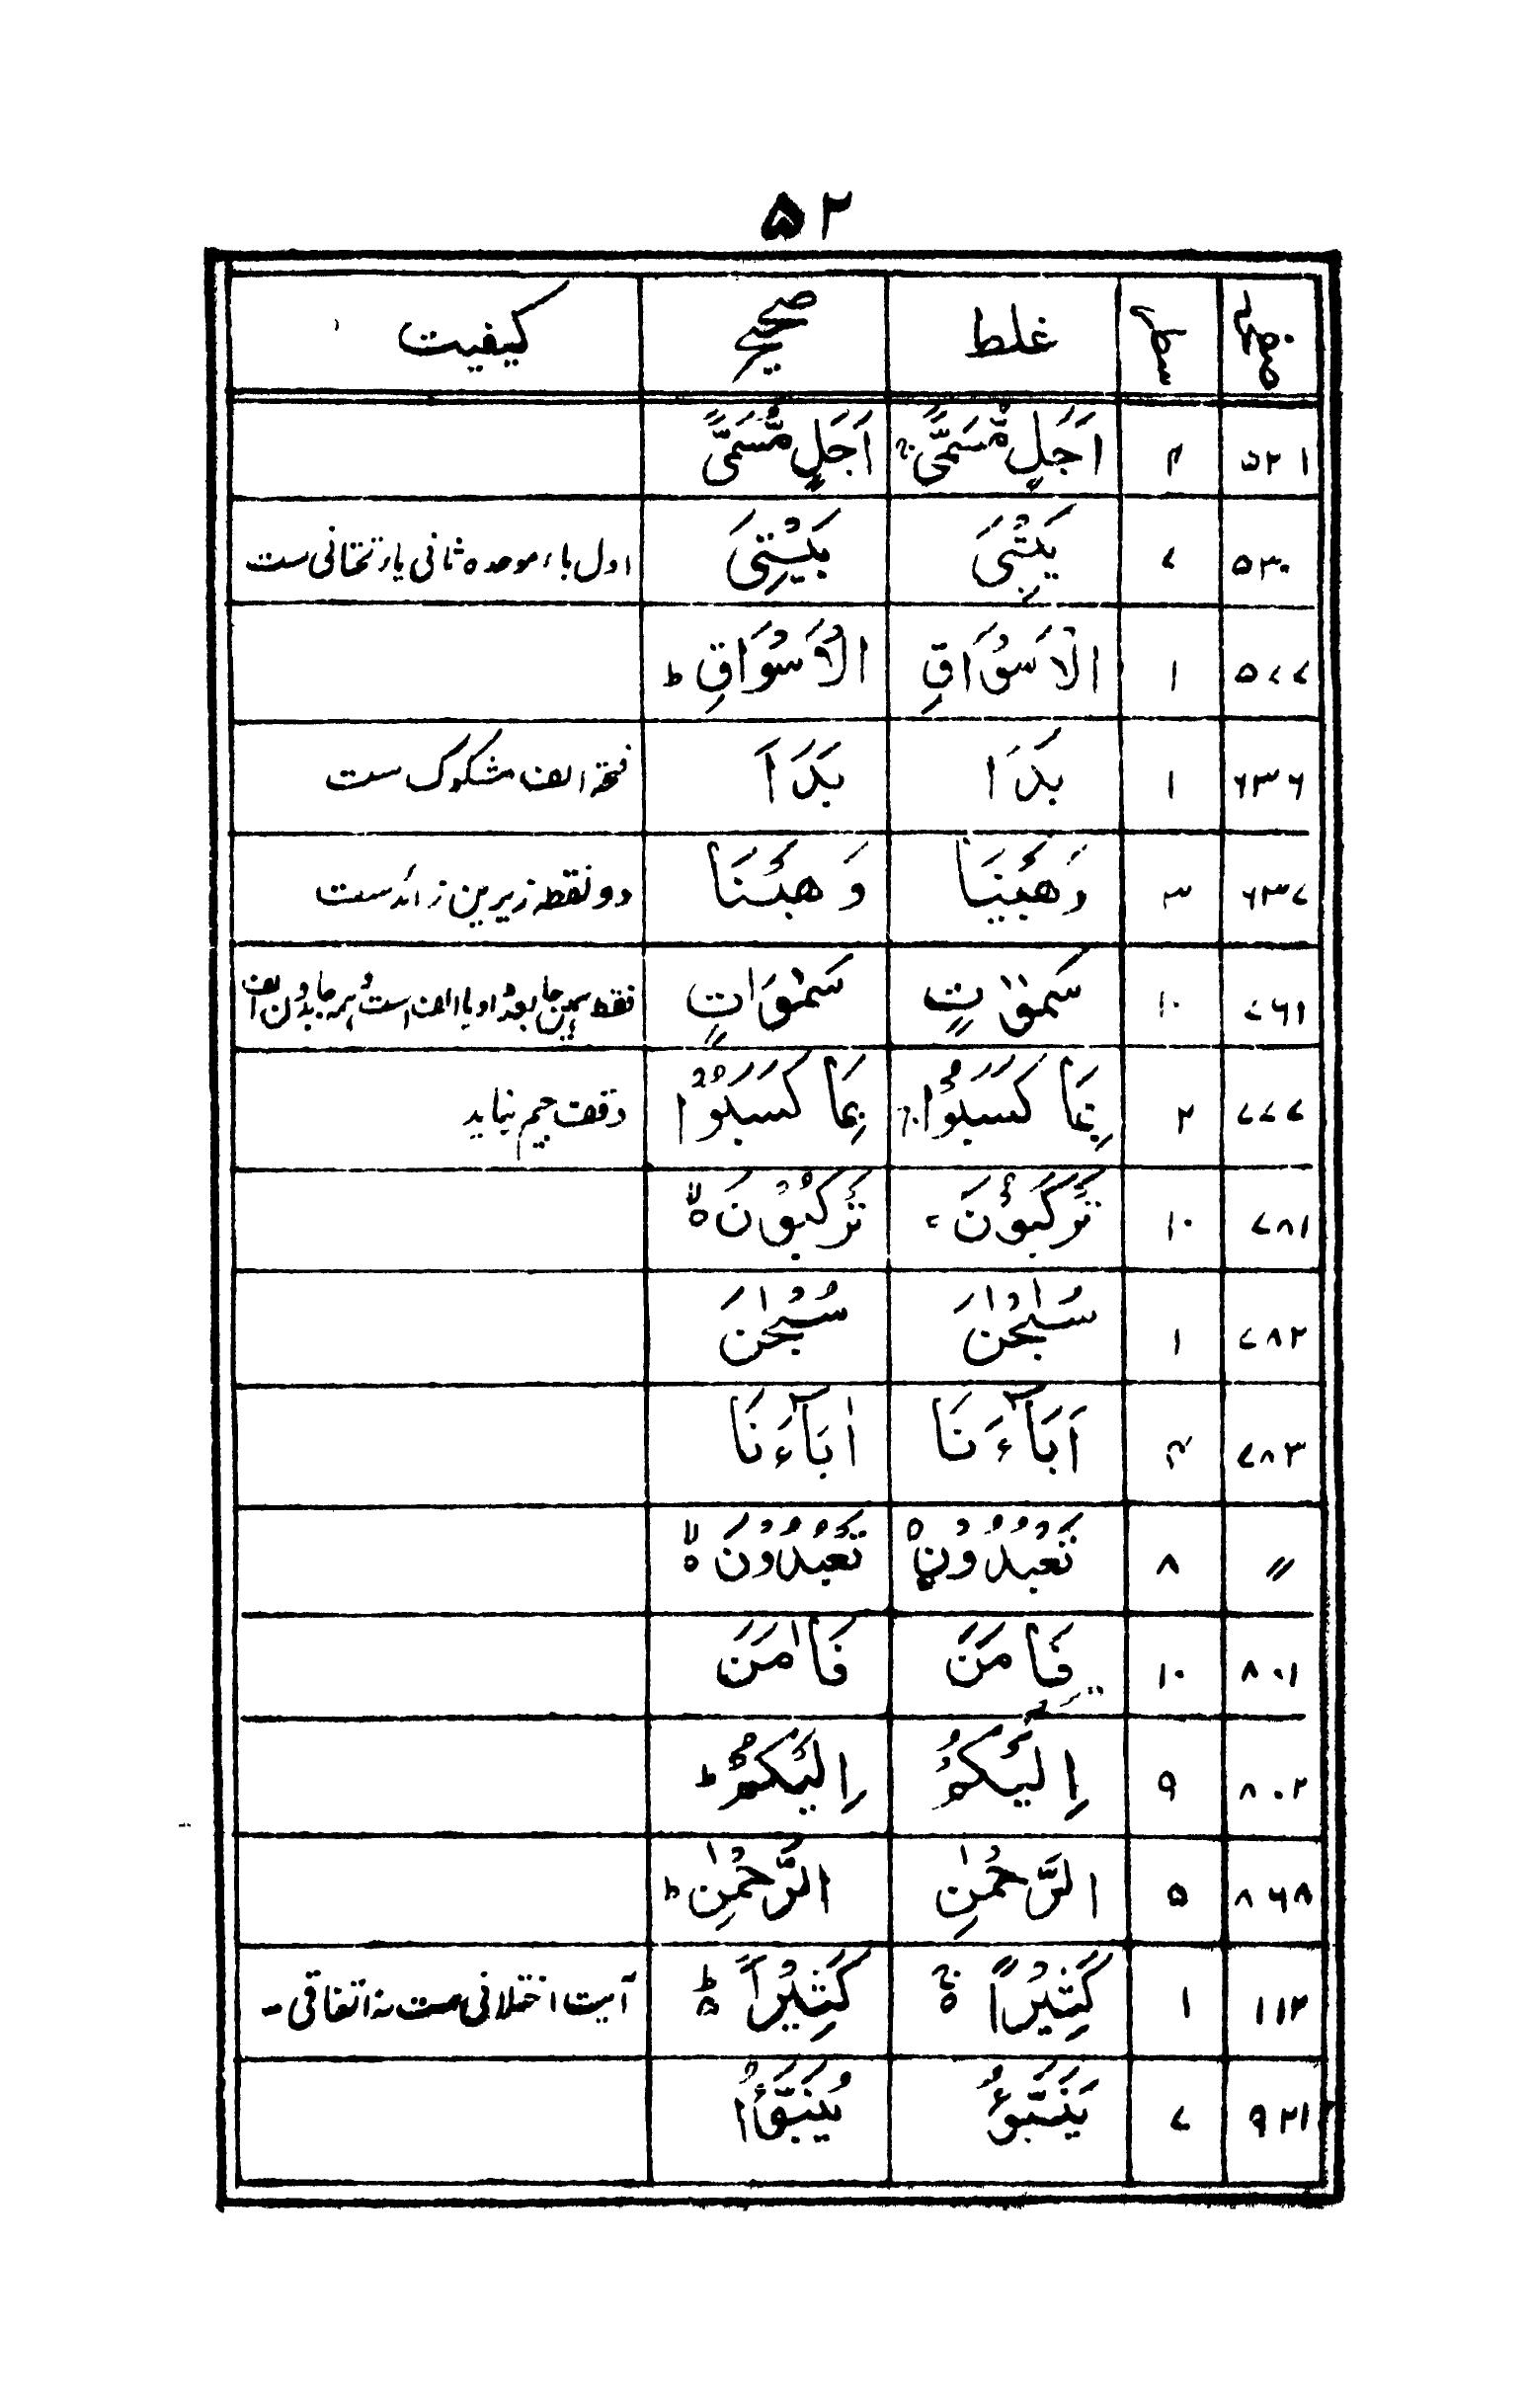 ۵۲
صفحہ سطر غلط صحیح کیفیت
۵۲۱ ۴ اَجَلٍ مُّسَمًّىۚ اَجَلٍ مُّسَمًّى
۵۳۰ ۷ بَیْتِیَ اول باء موحدہ ثانی یاء تحتانی ست
۵۷۷ ۱ الْاَسْوَاقِ الْاَسْوَاقِ ؕ
۶۳۶ ۱ بَدَا بَدَاَ فتحۂ الف مشکوک ست
۶۳۷ ۳ وَهَبْنَیَا وَ هَبْنَا دو نقطہ زیرین زائد ست
۷۶۱ ۱۰ سَمٰوٰتٍ سَمٰوَاتٍ
۷۷۷ ۲ بِمَا كَسَبُوْاۚ بِمَا كَسَبُوْا وقف جیم نیاید
۷۸۱ ۱۰ تَرْكَبُوْنَ تَرْكَبُوْنَ ۙ
۷۸۲ ۱ سُبْحٰنَ سُبْحٰنَ
۷۸۳ ۴ اَبَآءَنَا اٰبَآءَنَا
〃 ۸ تَعْبُدُوْنَ تَعْبُدُوْنَ ۙ
۸۰۱ ۱۰ فَاٰمَنَ فَاٰمَنَ
۸۰۲ ۹ اِلَیْكُمْ اِلَیْكُمْ ؕ
۸۶۸ ۵ الرَّحْمٰنِ الرَّحْمٰنِ ؕ
۱۱۲ ۱ كَثِیْرًا ۚ كَثِیْرًا ؕ آیت اختلافی ست نہ اتفاقی۔
۹۲۱ ۷ یُنَبَّؤُا